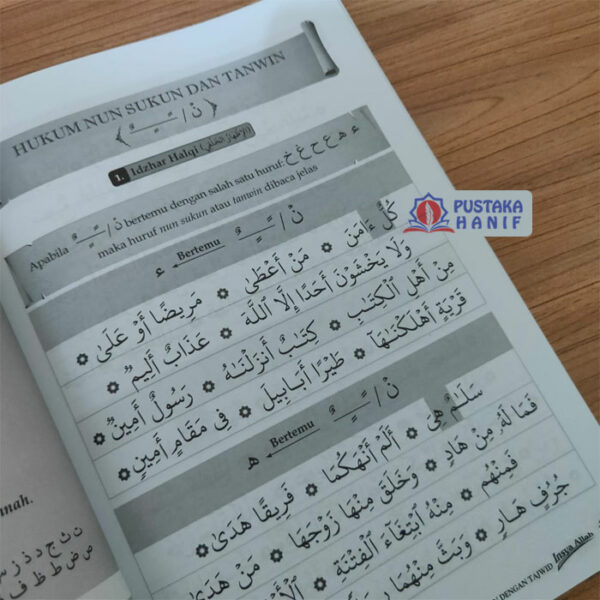 HUKUM NUN SUKUN DAN TANWIN
﴿ نْ / ـًـ ـٍـ ـٌـ ﴾
1. Idzhar Halqi (اَلْإِظْهَارُ الْحَلْقِيْ)
Apabila نْ / ـًـ ـٍـ ـٌـ bertemu dengan salah satu huruf: ء ه ع ح غ خ
maka huruf nun sukun atau tanwin dibaca jelas
نْ / ـًـ ـٍـ ـٌـ Bertemu ء
كُلٌّ ءَامَنَ ۞ مَنْ أَعْطَى ۞ مَرِيضًا أَوْ عَلَى ۞
وَلَا يَخْشَوْنَ أَحَدًا إِلَّا ٱللَّهَ ۞ عَذَابٌ أَلِيمٌ ۞
مِنْ أَهْلِ ٱلْكِتَٰبِ ۞ كِتَٰبٌ أَنزَلْنَٰهُ ۞ رَسُولٌ أَمِينٌ ۞
قَرْيَةٍ أَهْلَكْنَٰهَا ۞ طَيْرًا أَبَابِيلَ ۞ فِى مَقَامٍ أَمِينٍ ۞
نْ / ـًـ ـٍـ ـٌـ Bertemu ه
سَلَٰمٌ هِىَ ۞ أَلَمْ أَنْهَكُمَا ۞ فَرِيقًا هَدَىٰ ۞
فَمَا لَهُۥ مِنْ هَادٍ ۞ وَخَلَقَ مِنْهَا زَوْجَهَا ۞
فَمِنْهُم ۞ مِنْهُ ٱبْتِغَآءَ ٱلْفِتْنَةِ ۞ مَنْ هَدَى
جُرُفٍ هَارٍ ۞ وَبَثَّ مِنْهُمَا
DENGAN TAJWID Insya Allah
nnah.
ت ث ج د ذ ز س
ص ض ط ظ ف
PUSTAKA
HANIF